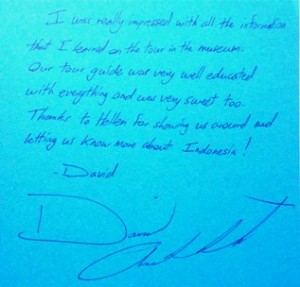 I was really impressed with all the information
that I learned on the tour in the museum.
Our tour guide was very well educated
with everything and was very sweet too.
Thanks to Hellen for showing us around and
letting us know more about Indonesia!
- David
David